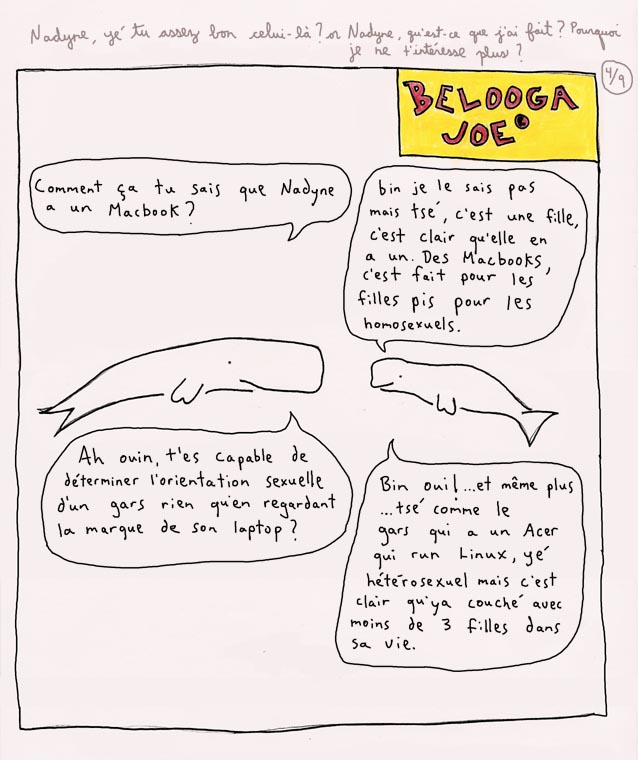 Nadyne, yé tu assez bon celui-là? or Nadyne, qu'est-ce que j'ai fait? Pourquoi
je ne t'intéresse plus?
4/9
BELOOGA
JOE
Comment ça tu sais que Nadyne
a un Macbook?
bin je le sais pas
mais tsé, c'est une fille,
c'est clair qu'elle en
a un. Des Macbooks,
c'est fait pour les
filles pis pour les
homosexuels.
Ah ouin, t'es capable de
déterminer l'orientation sexuelle
d'un gars rien qu'en regardant
la marque de son laptop?
Bin oui! ...et même plus
...tsé comme le
gars qui a un Acer
qui run Linux, yé
hétérosexuel mais c'est
clair qu'ya couché avec
moins de 3 filles dans
sa vie.